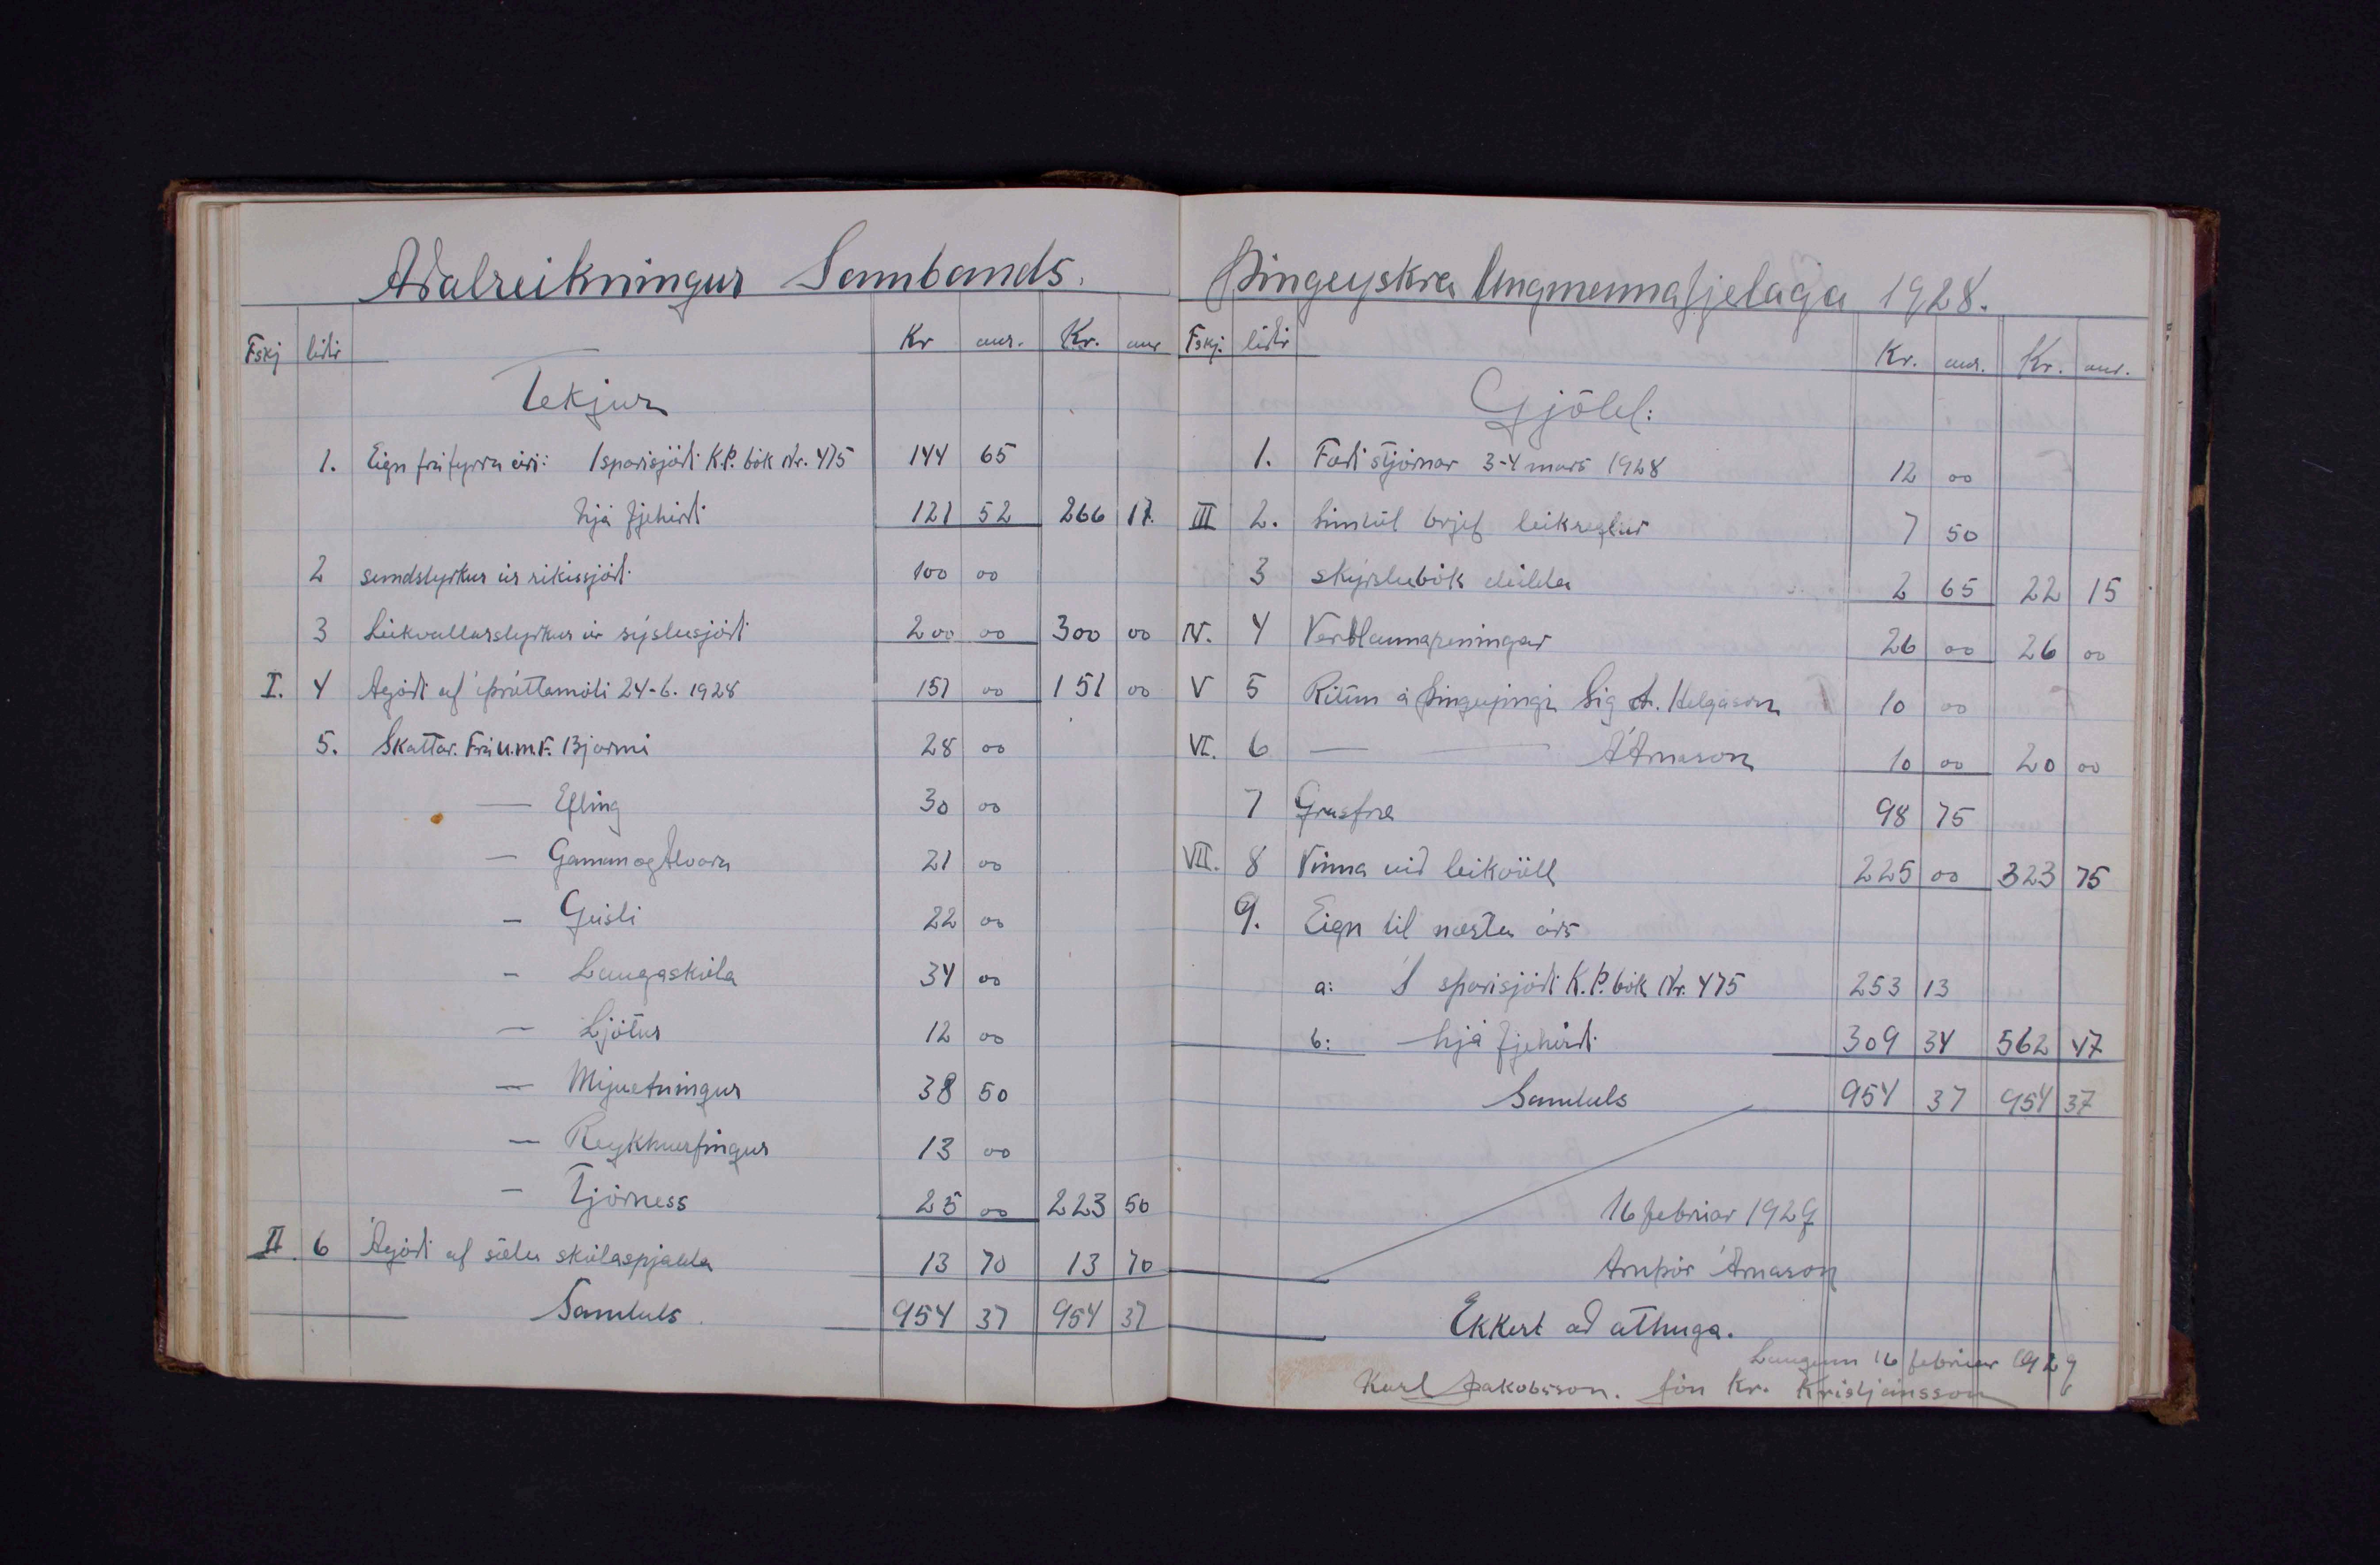 Aðalreikningur Sambands.
Fskj liðir Kr aur. Kr. aur
Tekjur
1. Eign frá fyrra ári: Í sparisjóði K.Þ. bók Nr. 475 144 65
hjá fjehirði 121 52 266 17.
2 sundstyrkur úr ríkissjóði 100 00
3 Leikvallarstyrkur úr sýslusjóði 200 00 300 00
I. 4 Ágóði af íþróttamóti 24-6. 1928 151 00 151 00
5. Skattar. Frá U.m.F. Bjarmi 28 00
— Efling 30 00
— Gaman og Alvara 21 00
— Geisli 22 00
— Laugaskóla 34 00
— Ljótur 12 00
— Mývetningur 38 50
— Reykhverfingur 13 00
— Tjörness 25 00 223 50
II. 6 Ágóði af sölu skólaspjalda 13 70 13 70
Samtals 954 37 954 37
Þingeyskra Ungmennafjelaga 1928.
Fskj. liðir Kr. aur. Kr. aur.
Gjöld:
1. Fæði stjórnar 3-4 mars 1928 12 00
III 2. Símtöl brjef leikreglur 7 50
3 skýrslubók deilda 2 65 22 15
IV. 4 Verðlaunapeningar 26 00 26 00
V 5 Ritun á Þingeyingi Sig A. Helgason 10 00
VI. 6 — — Á Árnason 10 00 20 00
7 Grasfræ 98 75
VII. 8 Vinna við leikvöll 225 00 323 75
9. Eign til næsta árs
a: Í sparisjóði K.Þ. bók Nr. 475 253 13
b: hjá fjehirði 309 34 562 47
Samtals 954 37 954 37
16 febrúar 1929
Arnþór Árnason
Ekkert að athuga.
Laugum 16 febrúar 1929
Karl Jakobsson. Jón Kr. Kristjánsson